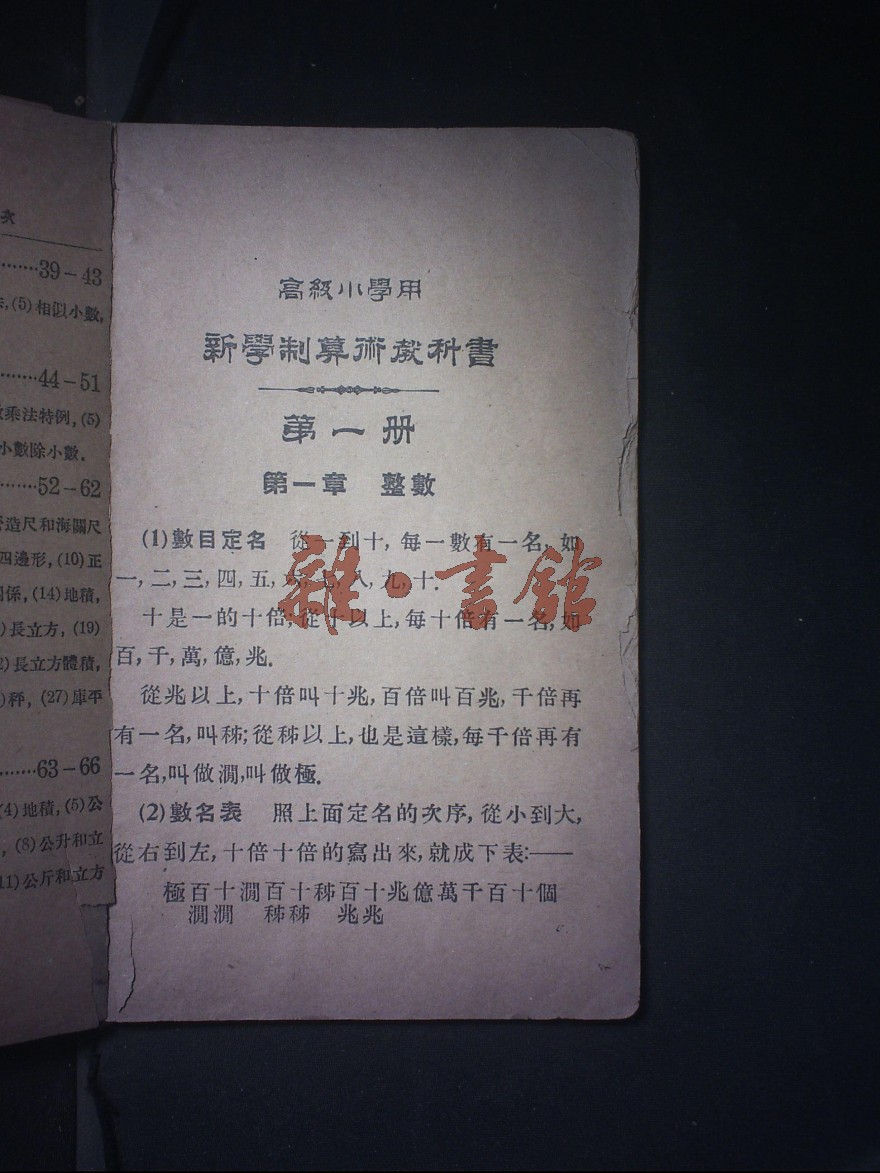 次
39-43
(5)相似小數,
44-51
乘法特例,(5)
小數除小數.
52-62
造尺和海關尺
四邊形,(10)正
係,(14)地積,
長立方,(19)
長立方體積,
秤,(27)庫平
63-66
(4)地積,(5)公
(8)公升和立
11)公斤和立方
高級小學用
新學制算術教科書
第一册
第一章 整數
(1)數目定名 從一到十,每一數有一名,如
一,二,三,四,五,六,七,八,九,十.
十是一的十倍;從十以上,每十倍有一名,如
百,千,萬,億,兆.
從兆以上,十倍叫十兆,百倍叫百兆,千倍再
有一名,叫秭;從秭以上,也是這樣,每千倍再有
一名,叫做澗,叫做極.
(2)數名表 照上面定名的次序,從小到大,
從右到左,十倍十倍的寫出來,就成下表:——
極百十澗百十秭百十兆億萬千百十個
澗澗 秭秭 兆兆
雜·書館